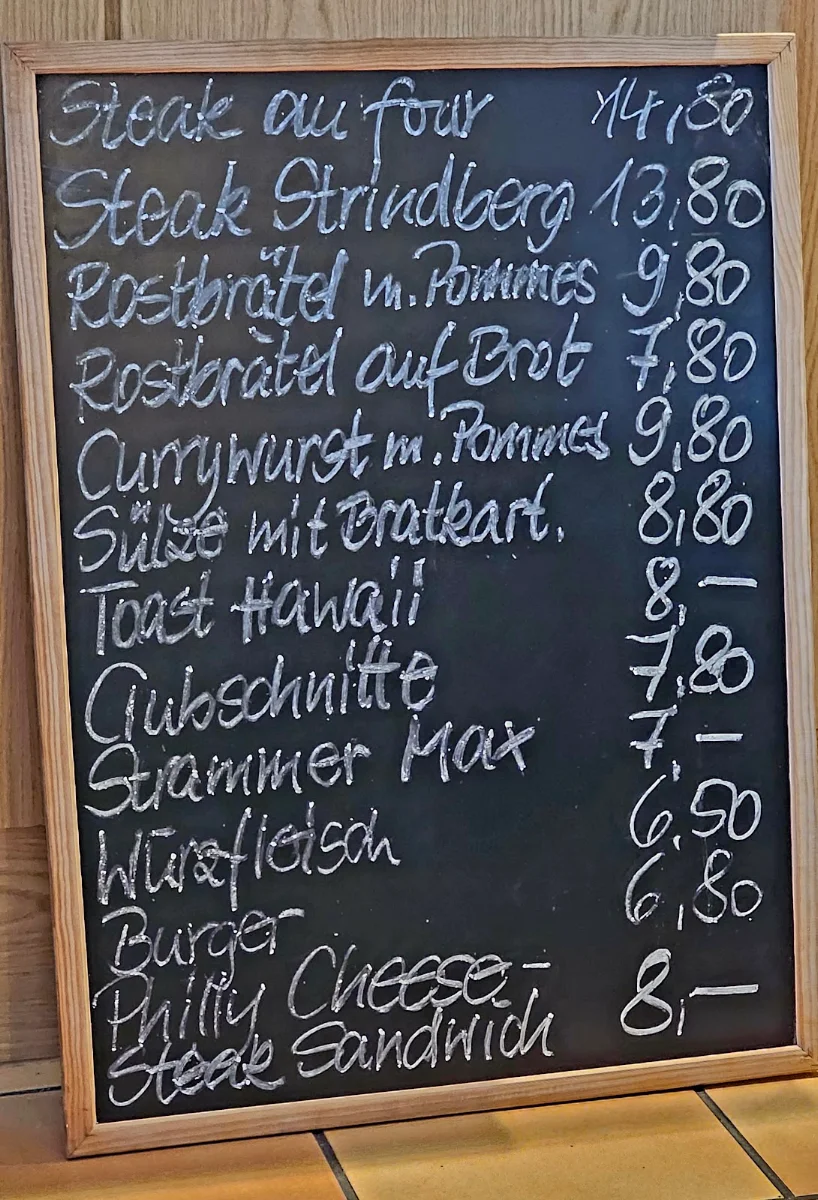 Steak au four 14,80
Steak Strindberg 13,80
Rostbrätel m. Pommes 9,80
Rostbrätel auf Brot 7,80
Currywurst m. Pommes 9,80
Sülze mit Bratkart. 8,80
Toast Hawaii 8,–
Clubschnitte 7,80
Strammer Max 7,–
Würzfleisch 6,50
Burger 6,80
Philly Cheese-
Steak Sandwich 8,–